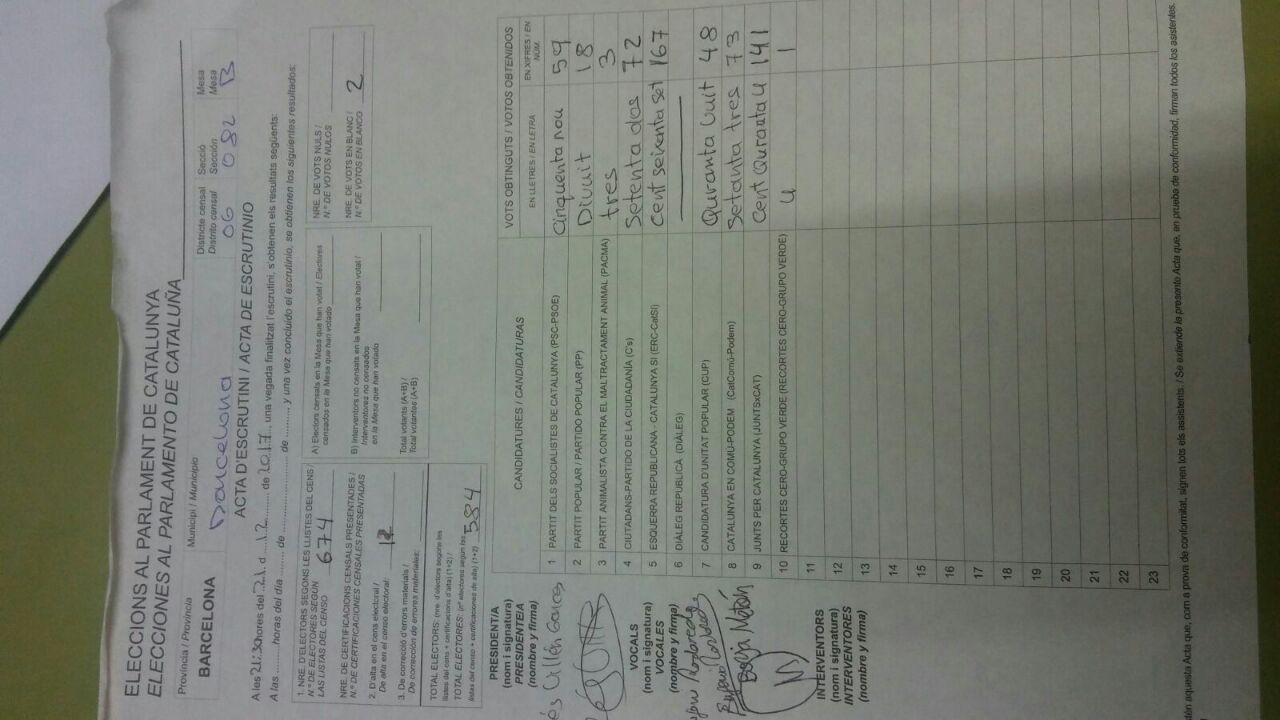 ELECCIONS AL PARLAMENT DE CATALUNYA
ELECCIONES AL PARLAMENTO DE CATALUÑA
Província / Provincia
Municipi / Municipio
Districte censal
Distrito censal
Secció
Sección
Mesa
Mesa
BARCELONA
Barcelona
06
082
B
ACTA D'ESCRUTINI / ACTA DE ESCRUTINIO
A les 21:30 hores del 21 d 12 de 2017, una vegada finalitzat l'escrutini, s'obtenen els resultats següents:
A las ........ horas del día ........ de ........ de ........ y una vez concluido el escrutinio, se obtienen los siguientes resultados:
1. NRE. D'ELECTORS SEGONS LES LLISTES DEL CENS /
N.º DE ELECTORES SEGÚN
LAS LISTAS DEL CENSO
674
NRE. DE CERTIFICACIONS CENSALS PRESENTADES /
N.º DE CERTIFICACIONES CENSALES PRESENTADAS
2. D'alta en el cens electoral /
De alta en el censo electoral:
3. De correcció d'errors materials /
De corrección de errores materiales:
TOTAL ELECTORS: (nre. d'electors segons les
llistes del cens + certificacions d'alta) (1+2) /
TOTAL ELECTORES: (nº electores según las
listas del censo + certificaciones de alta) (1+2)
584
A) Electors censats en la Mesa que han votat / Electores
censados en la Mesa que han votado
B) Interventors no censats en la Mesa que han votat /
Interventores no censados
en la Mesa que han votado
Total votants (A+B) /
Total votantes (A+B)
NRE. DE VOTS NULS /
N.º DE VOTOS NULOS
NRE. DE VOTS EN BLANC /
N.º DE VOTOS EN BLANCO
2
PRESIDENT/A
(nom i signatura)
PRESIDENTE/A
(nombre y firma)
VOCALS
(nom i signatura)
VOCALES
(nombre y firma)
INTERVENTORS
(nom i signatura)
INTERVENTORES
(nombre y firma)
CANDIDATURES / CANDIDATURAS
VOTS OBTINGUTS / VOTOS OBTENIDOS
EN LLETRES / EN LETRA
EN XIFRES / EN NÚM.
1 PARTIT DELS SOCIALISTES DE CATALUNYA (PSC-PSOE) Cinquenta nou 59
2 PARTIT POPULAR / PARTIDO POPULAR (PP) Divuit 18
3 PARTIT ANIMALISTA CONTRA EL MALTRACTAMENT ANIMAL (PACMA) tres 3
4 CIUTADANS-PARTIDO DE LA CIUDADANÍA (C's) Setenta dos 72
5 ESQUERRA REPUBLICANA - CATALUNYA SÍ (ERC-CatSí) cent seixanta set 167
6 DIÀLEG REPUBLICÀ (DIÀLEG)
7 CANDIDATURA D'UNITAT POPULAR (CUP) Quranta Vuit 48
8 CATALUNYA EN COMÚ-PODEM (CatComú-Podem) Setanta tres 73
9 JUNTS PER CATALUNYA (JUNTSxCAT) Cent Quranta u 141
10 RECORTES CERO-GRUPO VERDE (RECORTES CERO-GRUPO VERDE) u 1
11
12
13
14
15
16
17
18
19
20
21
22
23
aquesta Acta que, com a prova de conformitat, signen tots els assistents. / Se extiende la presente Acta que, en prueba de conformidad, firman todos los asistentes.